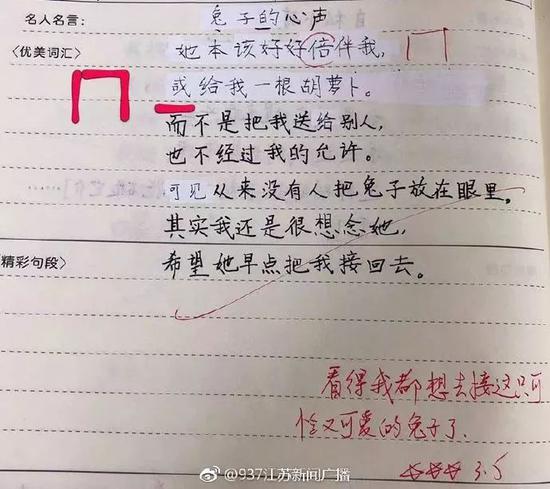 名人名言: 兔子的心声
〈优美词汇〉 她本该好好倍伴我,
或给我一根胡萝卜。
而不是把我送给别人,
也不经过我的允许。
可见从来没有人把兔子放在眼里。
其实我还是很想念她,
精彩句段〉 希望她早点把我接回去。
看得我都想去接这只可
怜又可爱的兔子了.
3.5
@937江苏新闻广播